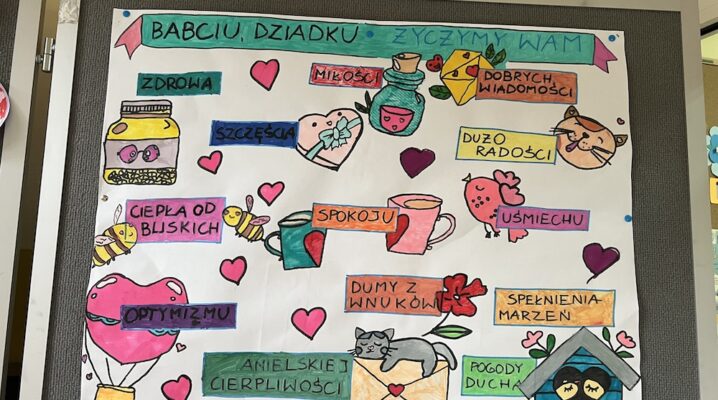 BABCIU, DZIADKU • ŻYCZYMY WAM
ZDROWA
MIŁOŚCI
DOBRYCH
WIADOMOŚCI
SZCZĘŚCIA
DUŻO
RADOŚCI
CIEPŁA OD
BLISKICH
SPOKOJU
UŚMIECHU
OPTYMIZMU
DUMY Z
WNUKÓW
SPEŁNIENIA
MARZEŃ
ANIELSKIEJ
CIERPLIWOŚCI
POGODY
DUCHA